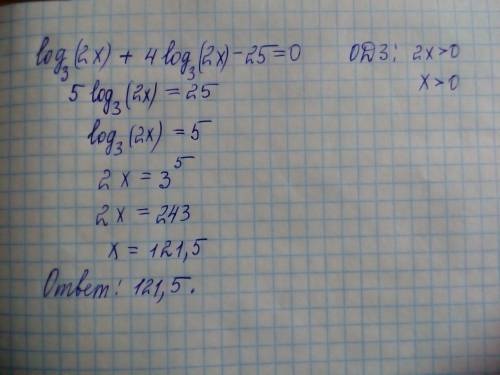 log₃(2x) + 4 log₃(2x) - 25 = 0 ОДЗ: 2x > 0
5 log₃(2x) = 25 x > 0
log₃(2x) = 5
2x = 3⁵
2x = 243
x = 121,5
Ответ: 121,5.